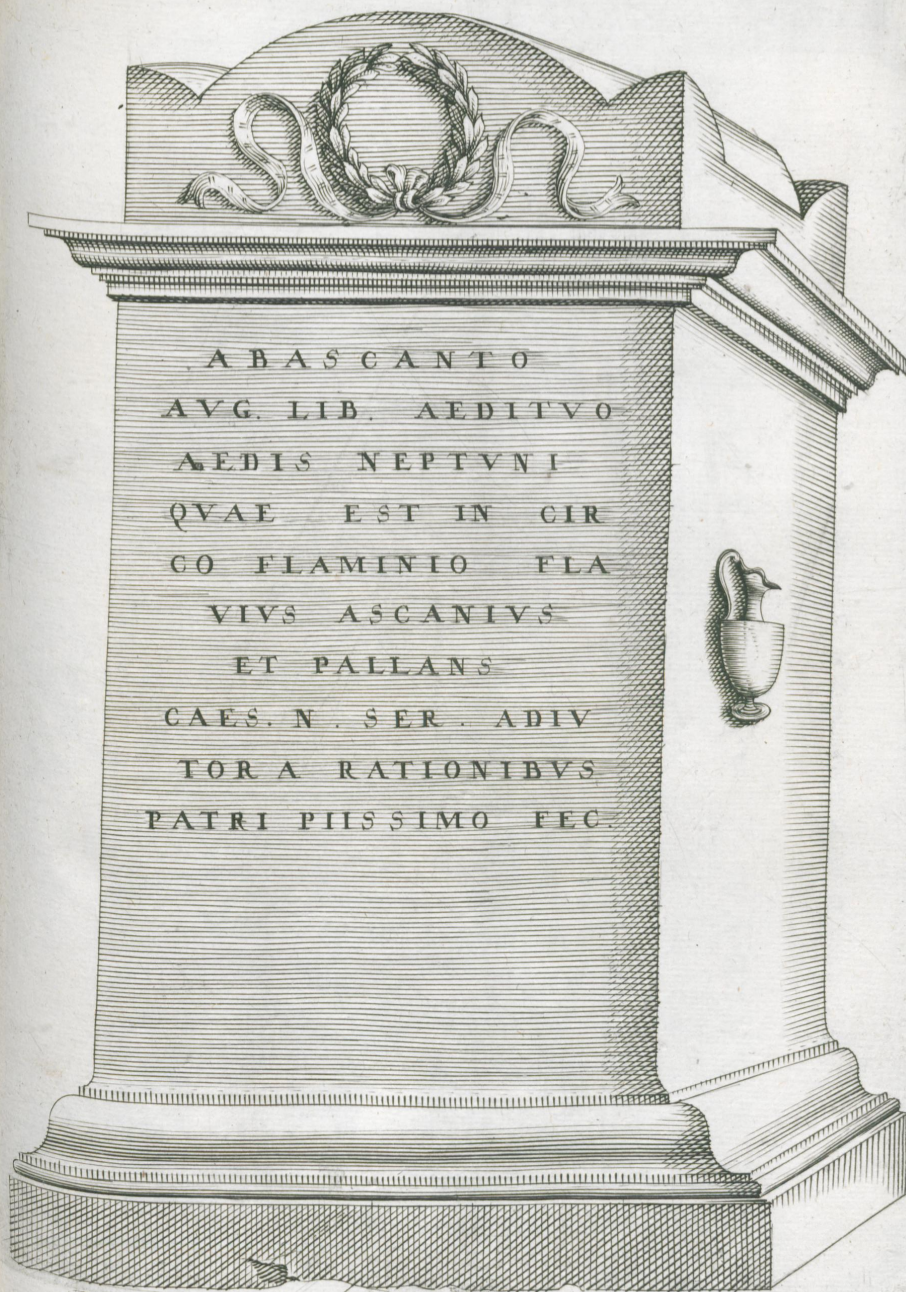 ABASCANTO
AVG. LIB. AEDITVO
AEDIS NEPTVNI
QVAE EST IN CIR
CO FLAMINIO FLA
VIVS ASCANIVS
ET PALLANS
CAES. N. SER. ADIV
TOR A RATIONIBVS
PATRI PIISSIMO FEC.